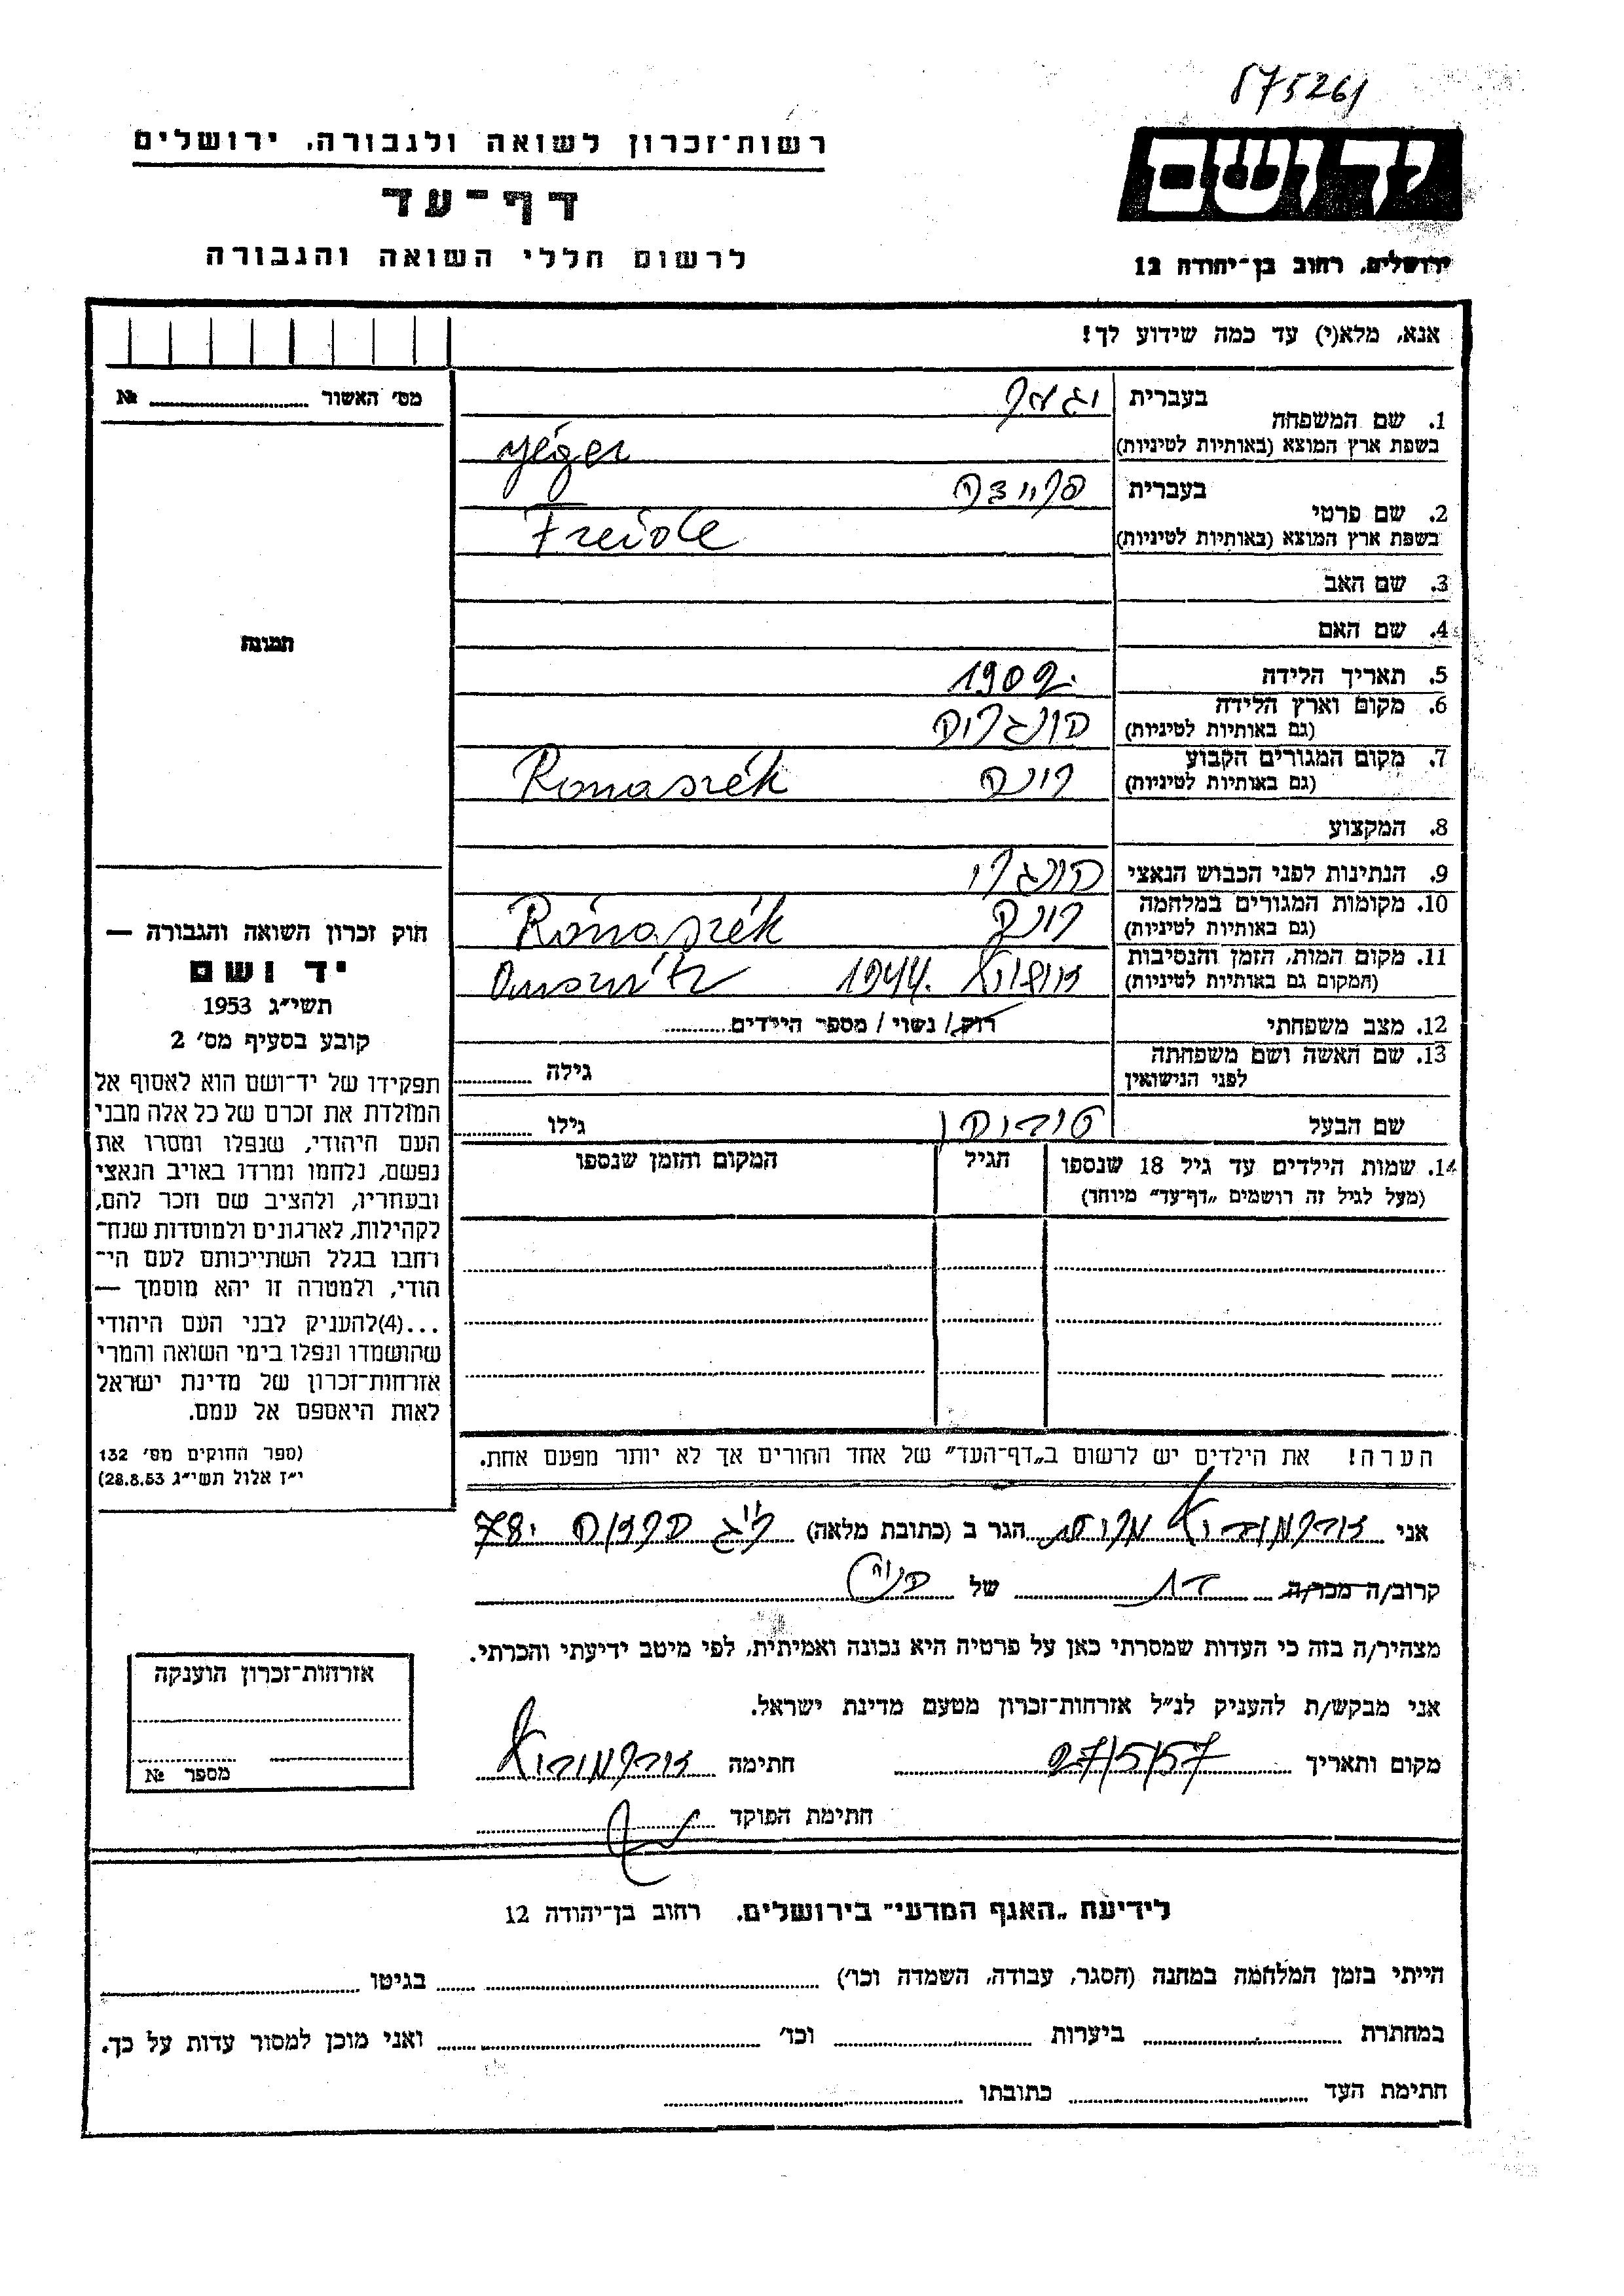 875261
רשות־זכרון לשואה ולגבורה, ירושלים
דף־עד
לרשום חללי השואה והגבורה
יד ושם
ירושלים, רחוב בן־יהודה 12
אנא, מלא(י) עד כמה שידוע לך!
מס׳ האשור № ............
תמונה
1. שם המשפחה
בעברית
בשפת ארץ המוצא (באותיות לטיניות) yéger
2. שם פרטי
בעברית
בשפת ארץ המוצא (באותיות לטיניות) Freide
3. שם האב
4. שם האם
5. תאריך הלידה 1902.
6. מקום וארץ הלידה הונגריה
(גם באותיות לטיניות)
7. מקום המגורים הקבוע רונה Rónaszék
(גם באותיות לטיניות)
8. המקצוע
9. הנתינות לפני הכבוש הנאצי הונגרי
10. מקומות המגורים במלחמה רונה Rónaszék
(גם באותיות לטיניות)
11. מקום המות, הזמן והנסיבות 1944.
(המקום גם באותיות לטיניות)
12. מצב משפחתי רוק / נשוי / מספר הילדים............
13. שם האשה ושם משפחתה
לפני הנישואין
גילה ............
שם הבעל
גילו ............
14. שמות הילדים עד גיל 18 שנספו
(מעל לגיל זה רושמים „דף־עד״ מיוחד)
הגיל
המקום והזמן שנספו
חוק זכרון השואה והגבורה —
יד ושם
תשי״ג 1953
קובע בסעיף מס׳ 2
תפקידו של יד־ושם הוא לאסוף אל
המולדת את זכרם של כל אלה מבני
העם היהודי, שנפלו ומסרו את
נפשם, נלחמו ומרדו באויב הנאצי
ובעוזריו, ולהציב שם וזכר להם,
לקהילות, לארגונים ולמוסדות שנח־
רבו בגלל השתייכותם לעם הי־
הודי, ולמטרה זו יהא מוסמך —
...(4)להעניק לבני העם היהודי
שהושמדו ונפלו בימי השואה והמרי
אזרחות־זכרון של מדינת ישראל
לאות היאספם אל עמם.
(ספר החוקים מס׳ 132
י״ז אלול תשי״ג 28.8.53)
הערה! את הילדים יש לרשום ב„דף־העד״ של אחד ההורים אך לא יותר מפעם אחת.
אני הגר ב (כתובת מלאה)
קרוב/ה מכר/ה של
מצהיר/ה בזה כי העדות שמסרתי כאן על פרטיה היא נכונה ואמיתית, לפי מיטב ידיעתי והכרתי.
אני מבקש/ת להעניק לנ״ל אזרחות־זכרון מטעם מדינת ישראל.
מקום ותאריך 27/5/57 חתימה
חתימת הפוקד
אזרחות־זכרון הוענקה
מספר №
לידיעת „האגף המדעי״ בירושלים, רחוב בן־יהודה 12
הייתי בזמן המלחמה במחנה (הסגר, עבודה, השמדה וכו׳) ............ בגיטו ............
במחתרת ............ ביערות ............ וכו׳ ............ ואני מוכן למסור עדות על כך.
חתימת העד ............ כתובתו ............